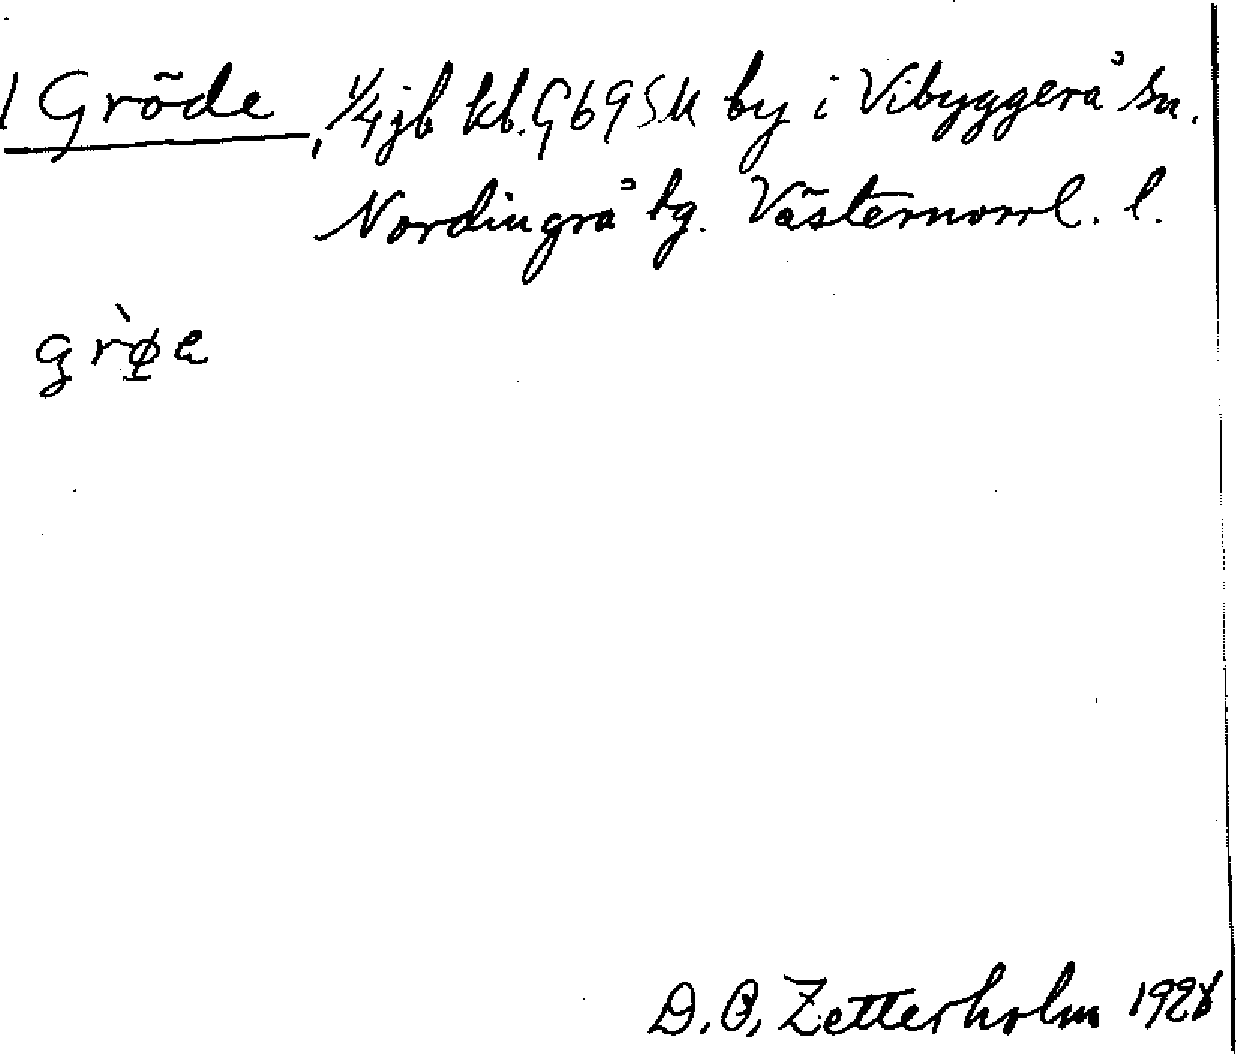 1 Gröde, 1/4 jb kb. G 69 SU by i Vibyggerå sn.
Nordingrå tg. Västernorrl. l.
grø̀e
D. O. Zetterholm 1928